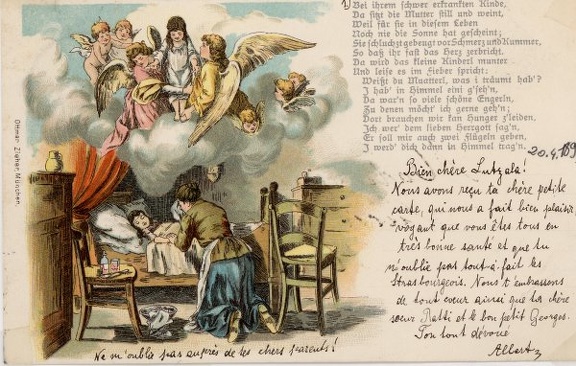 1) Bei ihrem schwer erkrankten Kinde,
Da sitzt die Mutter still und weint,
Weil für sie in diesem Leben
Noch nie die Sonne hat gescheint;
Sie schluchzt gebeugt vor Schmerz und Kummer,
So daß ihr fast das Herz zerbricht.
Da wird das kleine Kinderl munter
Und leise es im Fieber spricht:
Weißt du Muatterl, was i träumt hab'?
I hab' in Himmel eini g'seh'n,
Da war'n so viele schöne Engerln,
Zu denen möcht' ich gerne geh'n;
Dort brauchen wir kan Hunger z'leiden,
Ich wer' dem lieben Herrgott sag'n,
Er soll mir auch zwei Flügeln geben,
I werd' dich dann in Himmel trag'n.
20.4.189
Ottmar Zieher, München.
Bien chère Lutzala!
Nous avons reçu ta chère petite
carte, qui nous a fait bien plaisir
voyant que vous êtes tous en
très bonne santé et que tu
n'oublie pas tout-à-fait les
Strasbourgeois. Nous t'embrassons
de tout coeur ainsi que ta chère
soeur et le bon petit Georges.
Ton tout dévoué
Albert
Ne m'oublie pas auprès de tes chers parents!